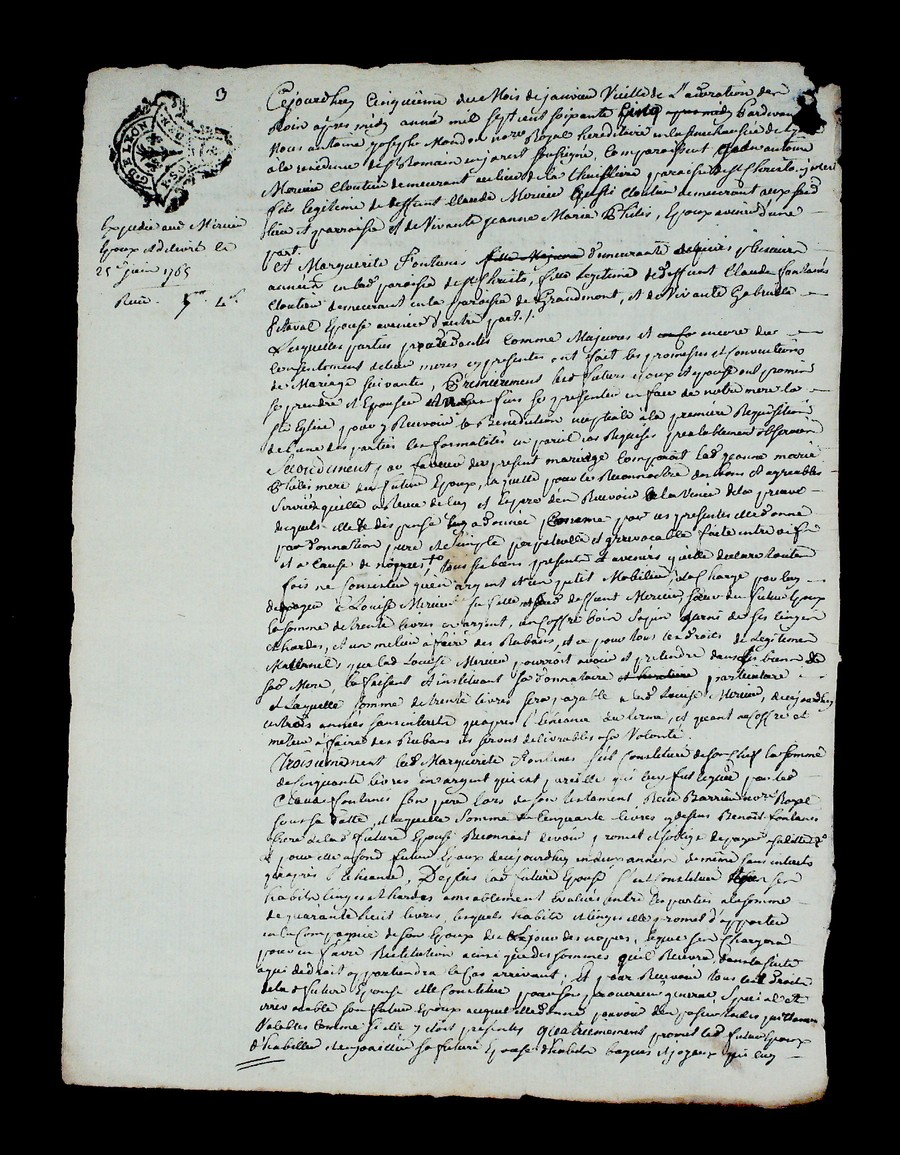 3
GD. E LYON
Cejourdhuy Cinquieme du Mois de janvier Veille de l'adoration des
Rois apres midy année mil sept cent soixante Cinq pardevant
Nous antoine joseph notre Royal hereditaire en la senechaussée de
a la residence de St Romain en jarest soussigné, Comparoissent antoine
Mercier Cloutier demeurant au lieu de la paroisse de St Christo
fils legitime de deffunt Claude Mercier Cloutier demeurant auxsusd
lieu et parroisse et de Vivante jeanne Marie Philis, Epoux avenir d'une
part.
Et Marguerite Fontanés demeurante depuis plusieurs
années en lad paroisse de St Christo, fille legitime de deffunt Claude fontanés
Cloutier demeurant en la paroisse de Grandmont, et de Vivante Gabrielle
Epouse avenir d'autre part.
Lesquelles parties procedantes comme Majeures et encore du
consentement de leurs meres cy presentes ont fait les promesses et Conventions
de Mariage suivantes, Premierement lesd futurs Epoux et epouse ont promis
se prendre et Epouser fins se presenter en face de notre mere la
Ste Eglise pour y Recevoir la Benediction nuptiale a la premiere Requisition
de l'une des parties les formalités en pareil cas Requises prealablement observées
Secondement en faveur du present mariage Comparoit lad jeanne marie
Philis mere du futur Epoux, laquelle pour le Reconnoitre des bons et agreables
services quelle a Reçu de luy et espere d'en Recevoir a la venir de la preuve
desquels elle le dispense luy a donné comme par ces presentes elle donne
par donnation pure et simple perpetuelle et irrevocable faite entre vifs
et a cause de noces tous ses biens presents et avenirs quelle declare toutes
fois ne Consister qu'en argent et en un petit Mobilier, a la Charge par luy
de payer a Louise Mercier sa fille deffunt Mercier, soeur du futur Epoux
la somme de trente livres en argent, un Coffre bois Sapin garni de ses linges
et hardes, et un metier a faire des Rubans, et ce pour tous les droits de Legitimes
Maternels que lad Louise Mercier pourroit avoir et pretendre dans les biens de
sad Mere, la faisant et instituant sa donnataire particuliere
et Laquelle somme de trente livres sera payable a lad Louise Mercier, dicy
en trois années sans interets qu'apres l'echeance du terme, et quant au Coffre et
metier a faire des Rubans ils seront delivrables a sa Volonté.
Troisiemement lad Marguerite Fontanés s'est Constituée de son Chef la somme
de Cinquante livres en argent qui est pareille qui luy fut leguée par led
Claude fontanés son pere lors de son testament, Reçu Barrieu notre Royal
sous sa datte, et laquelle somme de Cinquante livres cy dessus Benoît Fontanes
frere de lad future Epouse Reconnoit devoir promet et s'oblige de payer
et pour elle a sond futur Epoux de cejourdhuy en deux années de même sans interets
qu'apres l'echeance, De plus lad future Epouse s'est Constituée ses
habits linges et hardes amiablement Evalués entre les parties a la somme
de quarante huit livres, lesquels habits et linges elle promet d'apporter
en la Compagnie de son Epoux le jour des noces, lequel s'en Chargera
pour en faire Restitution ainsi que des sommes qu'il Recevra dans la suite
a qui de droit appartiendra le Cas arrivant; Et pour Recevoir tous lesd Droits
de la d future Epouse elle Constitue pour son procureur general, Special et
irrevocable son futur Epoux auquel elle donne pouvoir d'en passer toutes quittances
Valables Comme si elle y etoit presente, Quatriemement promet led futur Epoux
d'habiller et enjoailler sa future Epouse d'habits bagues et joyaux qui luy
Expedié aud Mercier
Epoux et delivré le
25 juin 1765
Reçu